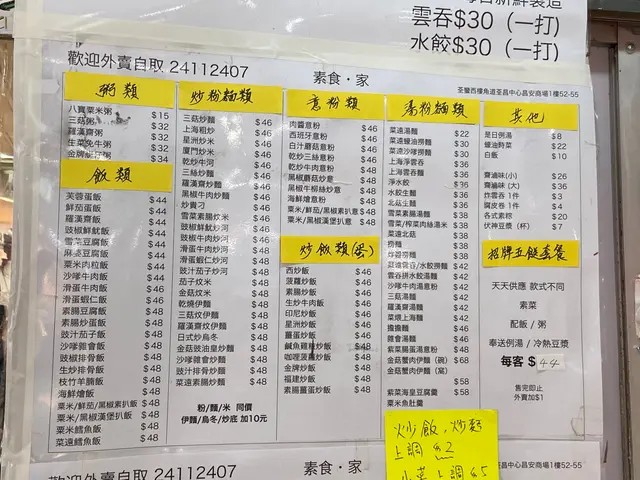 雲吞$30（一打）
水餃$30（一打）
歡迎外賣自取 24112407
素食・家
荃灣西樓角道荃昌中心昌安商場1樓52-55
粥類
八寶粟米粥 $15
三菇粥 $32
羅漢齋粥 $32
生菜免牛粥 $32
$34
飯類
芙蓉蛋飯 $44
鮮茄蛋飯 $44
羅漢齋飯 $44
豉椒鮮魷飯 $44
雪菜豆腐飯 $44
麻婆豆腐飯 $44
粟米肉粒飯 $44
沙嗲牛肉飯 $44
滑蛋牛肉飯 $46
滑蛋蝦仁飯 $46
素腸豆腐飯 $48
素腸炒蛋飯 $48
豉汁茄子飯 $48
沙嗲雜會飯 $48
豉椒排骨飯 $48
生炒排骨飯 $48
枝竹羊腩飯 $48
海鮮燴飯 $48
粟米/鮮茄/黑椒素扒飯 $48
粟米/黑椒漢堡扒飯 $48
粟米鱈魚飯 $48
菜遠鱈魚飯 $48
炒粉麵類
三菇炒麵 $46
上海粗炒 $46
星洲炒米 $46
廈門炒米 $46
乾炒牛河 $46
三絲炒麵 $46
羅漢齋炒麵 $46
黑椒牛肉炒麵 $46
炒貴刁 $46
雪菜素腸炆米 $46
豉椒鮮魷炒河 $46
豉椒牛肉炒河 $46
滑蛋牛肉炒河 $46
滑蛋蝦仁炒河 $46
豉汁茄子炒河 $48
茄子炆米 $48
金菇炆米 $48
乾燒伊麵 $48
三菇炆伊麵 $48
羅漢齋炆伊麵 $48
日式炒烏冬 $48
金菇豉油皇炒麵 $48
沙嗲雜會炒麵 $48
豉汁排骨炒麵 $48
菜遠素腸炒麵 $48
粉/麵/米 同價
伊麵/烏冬/炒底 加10元
意粉類
肉醬意粉 $46
西班牙意粉 $46
白汁蘑菇意粉 $46
乾炒三絲意粉 $46
乾炒牛肉意粉 $48
黑椒蘑菇炒意 $48
黑椒牛柳絲炒意 $48
海鮮燴意粉 $48
粟米/鮮茄/黑椒素扒意 $48
粟米/黑椒漢堡扒意 $48
炒飯類(蛋)
西炒飯 $46
菠蘿炒飯 $46
素腸炒飯 $46
生炒牛肉飯 $46
印尼炒飯 $46
星洲炒飯 $46
薑蛋炒飯 $46
鹹魚雞粒炒飯 $46
咖喱菠蘿炒飯 $48
金牌炒飯 $48
福建炒飯 $48
素腸薑蛋炒飯 $48
湯粉麵類
菜遠湯麵 $22
菜遠蠔油撈麵 $30
菜遠沙嗲撈麵 $30
上海淨雲吞 $36
上海雲吞麵 $36
淨水餃 $36
水餃生麵 $36
北菇生麵 $36
雪菜素腸湯麵 $38
雪菜/榨菜肉絲湯米 $38
菜遠北菇 $38
撈麵 $38
炸醬撈麵 $38
菇遠雲吞/水餃撈麵 $42
雲吞拼水餃湯麵 $42
沙嗲牛肉湯意粉 $42
三菇湯麵 $42
羅漢齋湯麵 $42
菜煨上海麵 $42
擔擔麵 $46
雜會湯麵 $46
紫菜腸蛋湯意粉 $48
金菇蟹肉伊麵（碗） $68
金菇蟹肉伊麵（窩）
$58
紫菜海皇豆腐羹 $58
粟米魚肚羹
其他
是日例湯 $8
蠔油時菜 $22
白飯 $10
齋滷味(小) $26
齋滷味 (大) $36
炸雲吞 1件 $3
腐皮卷 1件 $4
各式素粽 $20
伏神豆漿（杯） $7
招牌五餸套餐
天天供應 款式不同
素菜
配飯 / 粥
奉送例湯 / 冷熱豆漿
每客 $44
售完即止
外賣加$1
炒飯,炒麵
上調 $2
小菜上調 $5
歡迎外賣自取 24112407
素食・家
昌中心昌安商場1樓52-55